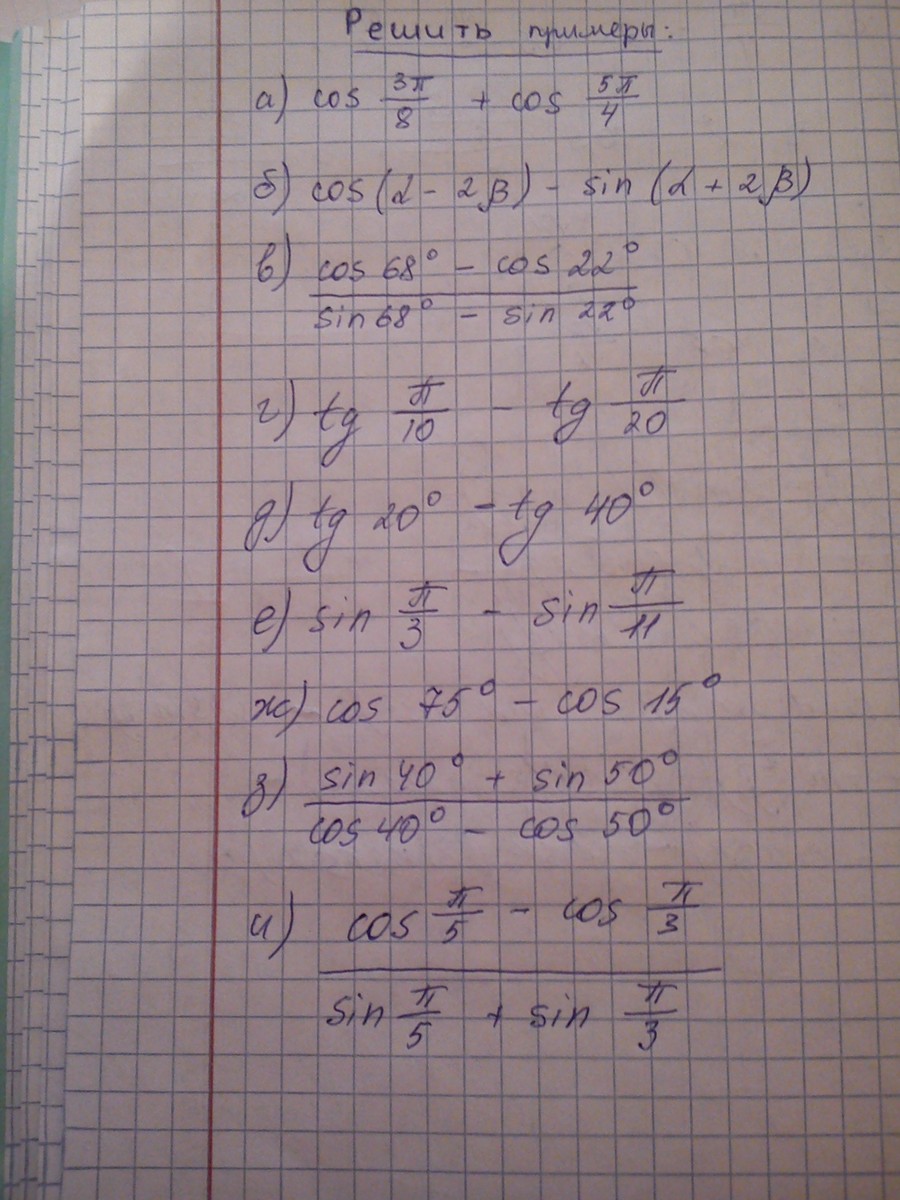 Решить примеры:
а) cos 3π/8 + cos 5π/4
б) cos(α - 2β) - sin(α + 2β)
в) cos 68° - cos 22°
sin 68° - sin 22°
г) tg π/10 - tg π/20
д) tg 20° - tg 40°
е) sin π/3 - sin π/11
ж) cos 75° - cos 15°
з) sin 40° + sin 50°
cos 40° - cos 50°
и) cos π/5 - cos π/3
sin π/5 + sin π/3